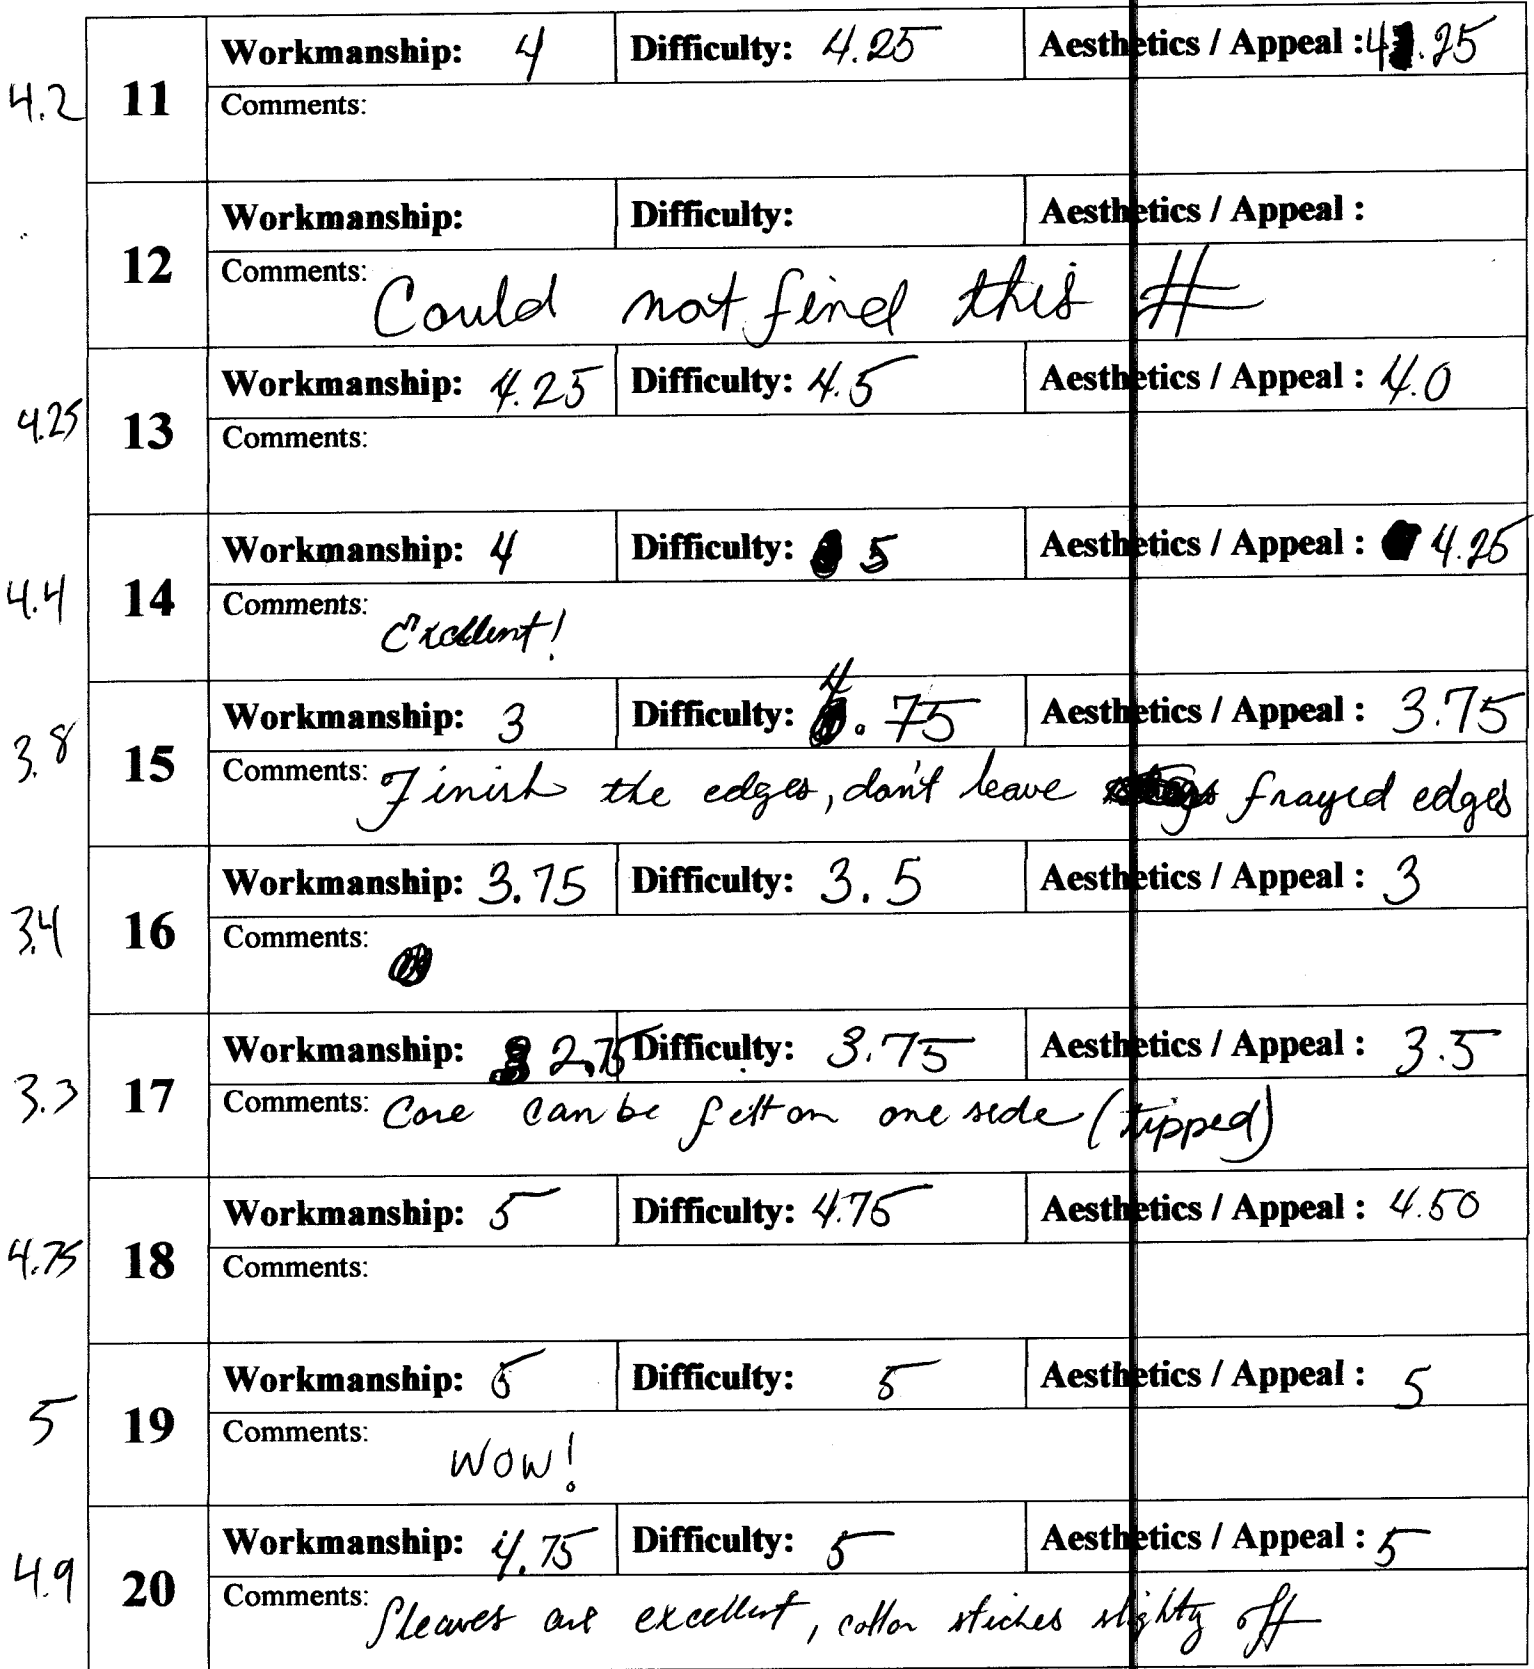 Workmanship: 4 Difficulty: 4.25 Aesthetics / Appeal : 4.25
4.2 11 Comments:
Workmanship: Difficulty: Aesthetics / Appeal :
12 Comments: Could not find this #
Workmanship: 4.25 Difficulty: 4.5 Aesthetics / Appeal : 4.0
4.25 13 Comments:
Workmanship: 4 Difficulty: 5 Aesthetics / Appeal : 4.25
4.4 14 Comments: Excellent!
Workmanship: 3 Difficulty: 4.75 Aesthetics / Appeal : 3.75
3.8 15 Comments: Finish the edges, don't leave frayed edges
Workmanship: 3.75 Difficulty: 3.5 Aesthetics / Appeal : 3
3.4 16 Comments:
Workmanship: 2.75 Difficulty: 3.75 Aesthetics / Appeal : 3.5
3.3 17 Comments: Core can be felt on one side (tipped)
Workmanship: 5 Difficulty: 4.75 Aesthetics / Appeal : 4.50
4.75 18 Comments:
Workmanship: 5 Difficulty: 5 Aesthetics / Appeal : 5
5 19 Comments: WOW!
Workmanship: 4.75 Difficulty: 5 Aesthetics / Appeal : 5
4.9 20 Comments: Sleaves are excellent, collar stiches slighty off